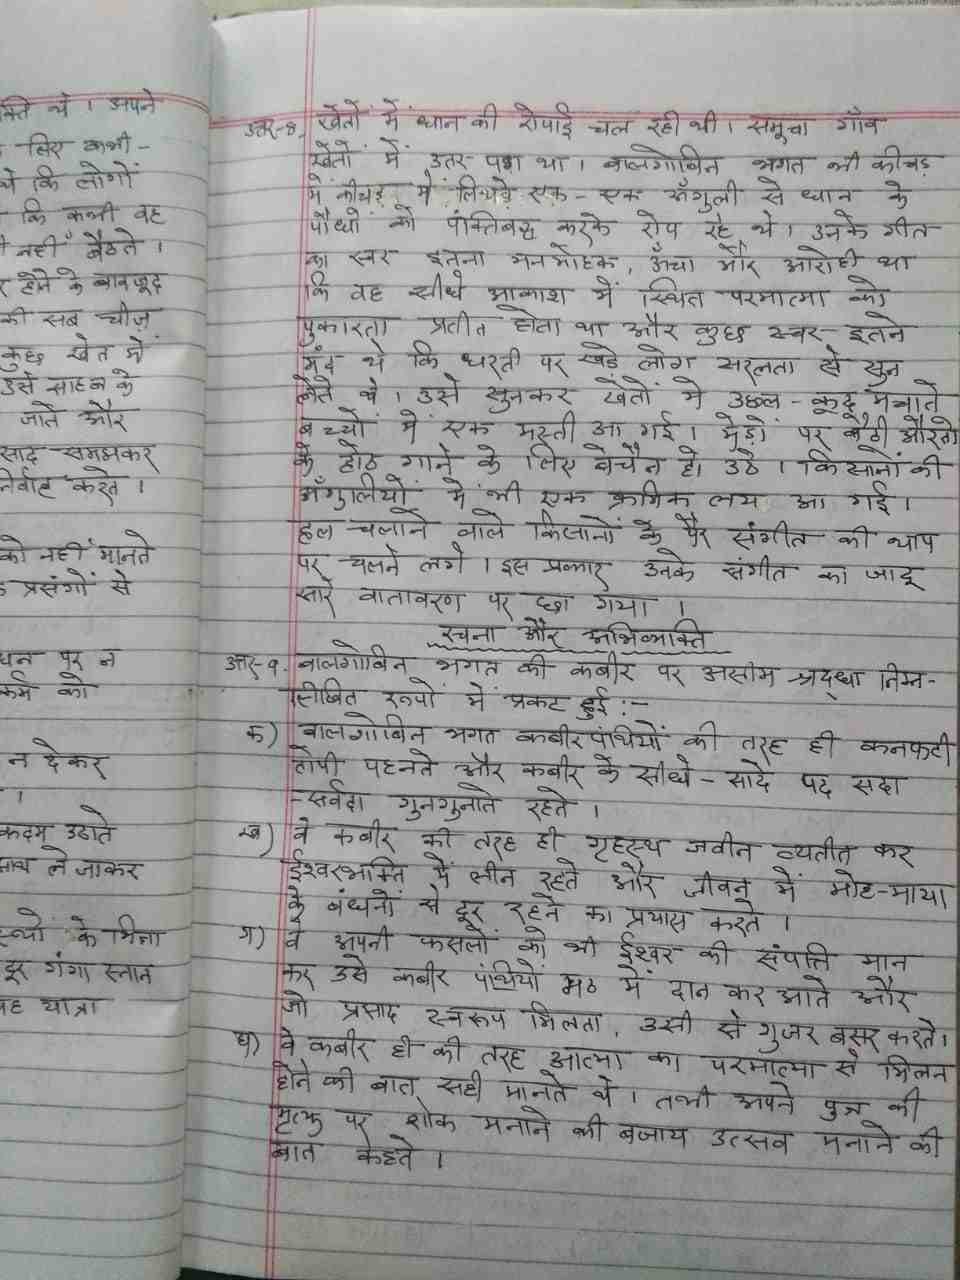 क्ति थे । अपने
लिए कभी -
थे कि लोगों
कि कभी वह
नहीं बैठते ।
होने के बावजूद
की सब चीज़
कुछ खेत में
उसे साहब के
जाते और
साद समझकर
निर्वाह करते ।
को नहीं मानते
प्रसंगों से
पर न
कर्म को
न देकर
।
कदम उठाते
साथ ले जाकर
के भिन्न
दूर गंगा स्नान
यह यात्रा
उत्तर-8. खेतों में धान की रोपाई चल रही थी । समूचा गाँव
खेतों में उतर पड़ा था । बालगोबिन भगत भी कीचड़
में कीचड़ में लिथड़े एक - एक अँगुली से धान के
पौधों को पंक्तिबद्ध करके रोप रहे थे । उनके गीत
का स्वर इतना मनमोहक, ऊँचा और आरोही था
कि वह सीधे आकाश में स्थित परमात्मा को
पुकारता प्रतीत होता था और कुछ स्वर इतने
मंद थे कि धरती पर खड़े लोग सरलता से सुन
लेते थे । उसे सुनकर खेतों में उछल - कूद मचाते
बच्चों में एक मस्ती आ गई । मेड़ों पर बैठी औरतों
के होंठ गाने के लिए बेचैन हो उठे । किसानों की
अँगुलियों में भी एक क्रमिक लय आ गई ।
हल चलाने वाले किसानों के पैर संगीत की थाप
पर चलने लगे । इस प्रकार उनके संगीत का जादू
सारे वातावरण पर छा गया ।
रचना और अभिव्यक्ति
उत्तर-9. बालगोबिन भगत की कबीर पर असीम श्रद्धा निम्न-
लिखित रूपों में प्रकट हुई :-
क) बालगोबिन भगत कबीरपंथियों की तरह ही कनफटी
टोपी पहनते और कबीर के सीधे - सादे पद सदा
-सर्वदा गुनगुनाते रहते ।
ख) वे कबीर की तरह ही गृहस्थ जवीन व्यतीत कर
ईश्वरभक्ति में लीन रहते और जीवन में मोह-माया
के बंधनों से दूर रहने का प्रयास करते ।
ग) वे अपनी फसलों को भी ईश्वर की संपत्ति मान
कर उसे कबीर पंथियों मठ में दान कर आते और
जो प्रसाद स्वरूप मिलता, उसी से गुजर बसर करते।
घ) वे कबीर ही की तरह आत्मा का परमात्मा से मिलन
होने की बात सही मानते थे । तभी अपने पुत्र की
मृत्यु पर शोक मनाने की बजाय उत्सव मनाने की
बात कहते ।